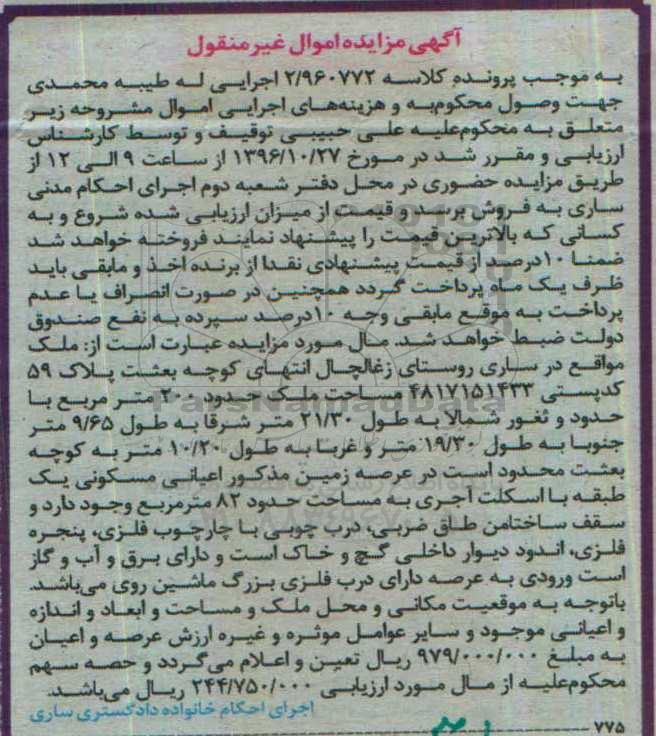 آگهی مزایده اموال غیرمنقول
به موجب پرونده کلاسه ۲/۹۶۰۷۷۲ اجرایی له طیبه محمدی
جهت وصول محکوم‌به و هزینه‌های اجرایی اموال مشروحه زیر
متعلق به محکوم‌علیه علی حبیبی توقیف و توسط کارشناس
ارزیابی و مقرر شد در مورخ ۱۳۹۶/۱۰/۲۷ از ساعت ۹ الی ۱۲ از
طریق مزایده حضوری در محل دفتر شعبه دوم اجرای احکام مدنی
ساری به فروش برسد و قیمت از میزان ارزیابی شده شروع و به
کسانی که بالاترین قیمت را پیشنهاد نمایند فروخته خواهد شد
ضمنا ۱۰درصد از قیمت پیشنهادی نقدا از برنده اخذ و مابقی باید
ظرف یک ماه پرداخت گردد همچنین در صورت انصراف یا عدم
پرداخت به موقع مابقی وجه ۱۰درصد سپرده به نفع صندوق
دولت ضبط خواهد شد. مال مورد مزایده عبارت است از: ملک
مواقع در ساری روستای زغالچال انتهای کوچه بعثت پلاک ۵۹
کدپستی ۴۸۱۷۱۵۱۴۳۳ مساحت ملک حدود ۲۰۰ متر مربع با
حدود و ثغور شمالا به طول ۲۱/۳۰ متر شرقا به طول ۹/۶۵ متر
جنوبا به طول ۱۹/۳۰ متر و غربا به طول ۱۰/۲۰ متر به کوچه
بعثت محدود است در عرصه زمین مذکور اعیانی مسکونی یک
طبقه با اسکلت آجری به مساحت حدود ۸۲ مترمربع وجود دارد و
سقف ساختامن طاق ضربی، درب چوبی با چارچوب فلزی، پنجره
فلزی، اندود دیوار داخلی گچ و خاک است و دارای برق و آب و گاز
است ورودی به عرصه دارای درب فلزی بزرگ ماشین روی می‌باشد.
باتوجه به موقعیت مکانی و محل ملک و مساحت و ابعاد و اندازه
و اعیانی موجود و سایر عوامل موثره و غیره ارزش عرصه و اعیان
به مبلغ ۹۷۹/۰۰۰/۰۰۰ ریال تعین و اعلام می‌گردد و حصه سهم
محکوم‌علیه از مال مورد ارزیابی ۲۴۴/۷۵۰/۰۰۰ ریال می‌باشد.
اجرای احکام خانواده دادگستری ساری
۷۷۵
ParsNamadData